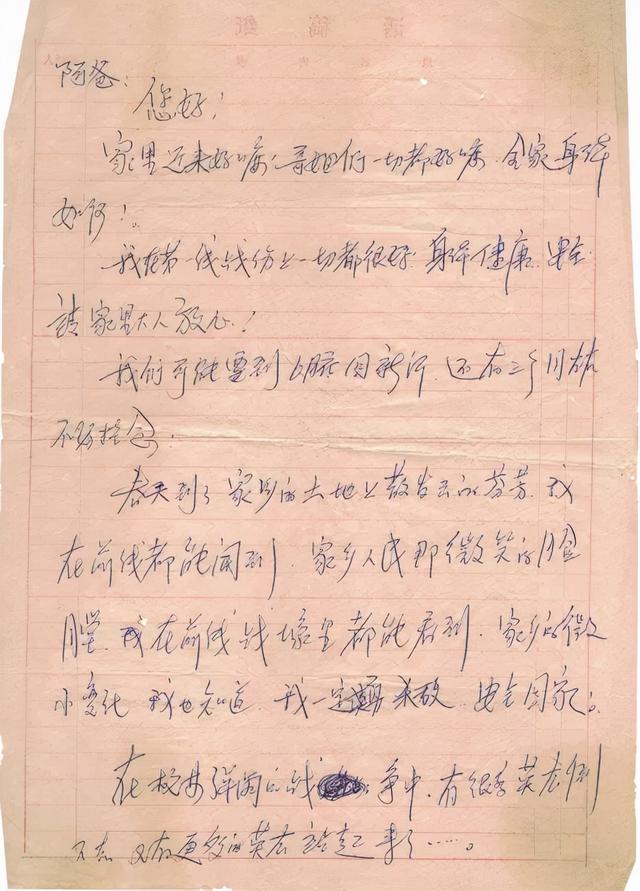 阿爸：
您好！
家里近来好嘛；哥姐们一切都好嘛，全家身体
如何！。
我在第一线战伤上一切都很好，身体健康、安全
请家里大人放心！
我们可能要到6月底回新沂，还有三个月左右
不必挂念。
春天到了家乡的土地上散发出的芬芳，我
在前线都能闻到，家乡人民那微笑的脸
膛，我在前线战壕里都能看到，家乡的微
小变化 我也知道，我一定 杀敌，安全回家。
在枪林弹雨的战争中，有很多英雄倒
下去，又有更多的英雄站起来了……。